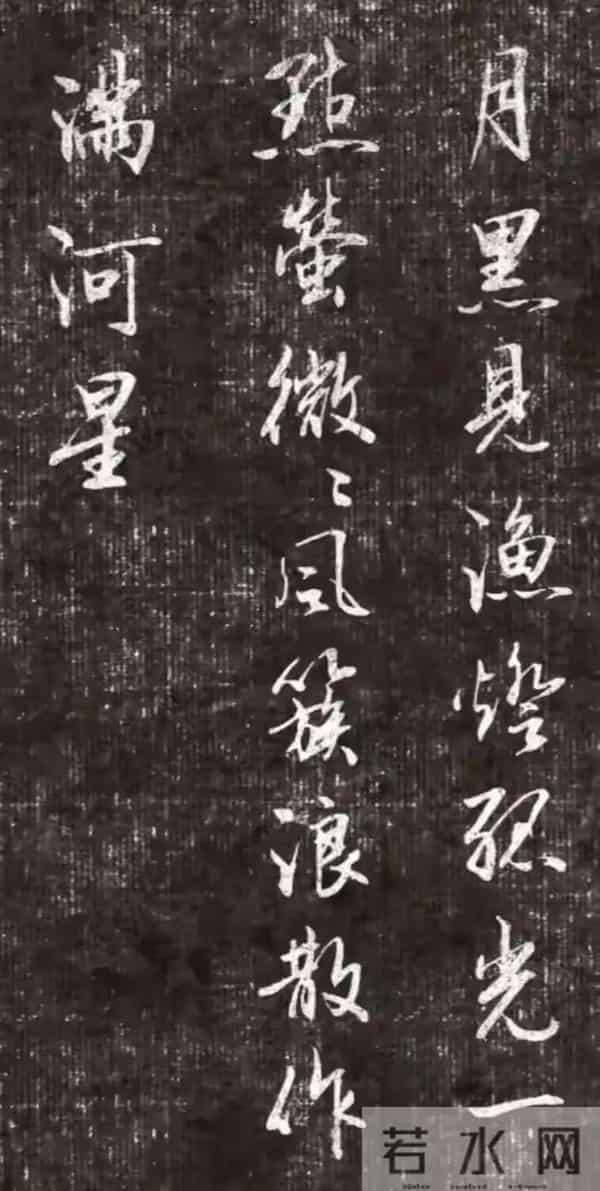 月黑見漁燈孤光一
點螢微〻風簇浪散作
滿河星
若水网